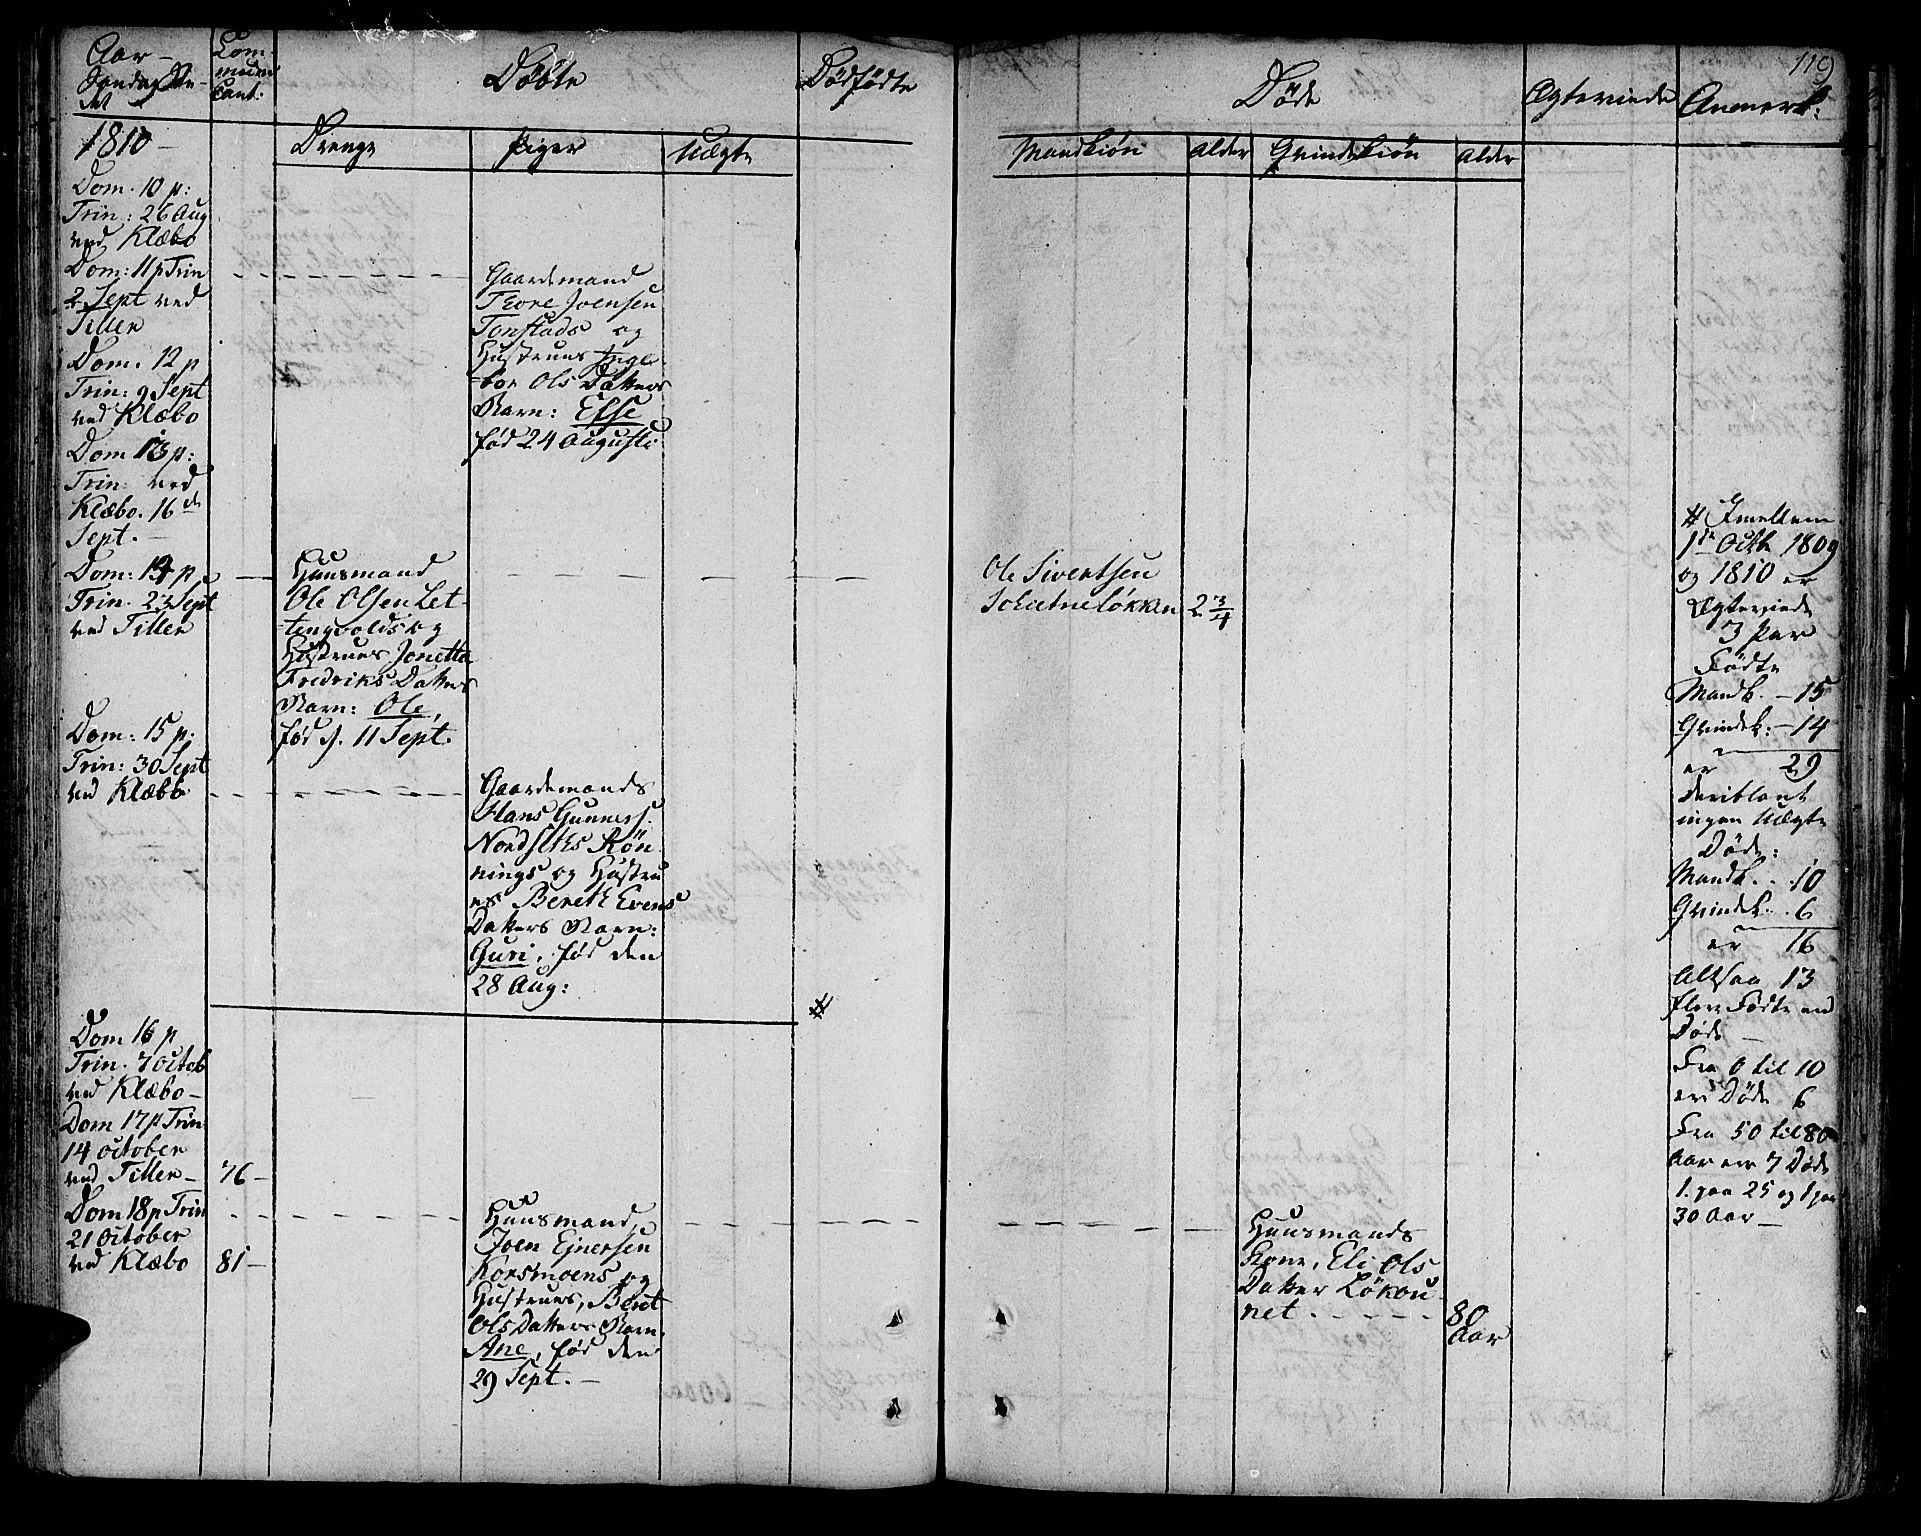 119
Aar
Søndag
Com
muni
cant:
Døbte
Dødfødte
Døde
Ægteviede
Anmerk:
1810
Drenge
Piger
Uægte
Mandkiøn
Alder
Qvindekiøn
Alder
Dom. 10 p:
Trin: 26 Aug
ved Klæbo
Dom: 11 p Trin
2 Sept ved
Tiller
Dom. 12 p
Trin: 9 Sept
ved Klæbo
Dom 13 p:
Trin: ved
Klæbo. 16de
Sept. -
Dom: 14 p
Trin. 23 Sept
ved Tiller
Dom: 15 p:
Trin: 30 Sept
ved Klæbo
Dom 16 p
Trin. 7 Octob
ved Klæbo -
Dom 17 p Trin
14 October
ved Tiller - 76 -
Dom 18 p Trin
21 October
ved Klæbo 81 -
Huusmand
Ole Olsen Let-
tingvolds og
Hustrues Jonetta
Fredriks Datters
Barn: Ole,
fød d. 11 Sept.
Gaardemand
Thore Joensen
Tonstads og
Hustrues Inge-
bor Ols Datters
Barn: Else
fød 24 Augusti
Gaardemands
Hans Gunners.
Nordseths Røn-
nings og Hustru-
es Bereth Evens
Datters Barn:
Guri, fød den
28 Aug:
#
Huusmand
Joen Ejnersen
Korsmoens og
Hustrues, Beret
Ols Datters Barn
Ane, fød den
29 Sept. -
Ole Sivertsen
Schetneløkken 2 3/4
Huusmands
Kone, Eli Ols
Datter Løkou-
net - - - - -
80
Aar
# Imellem
1de Octb 1809
og 1810 er
Ægteviede
3 Par
Fødte
Mandk. - 15
Qvindek: - 14
er 29
deriblant
ingen Uægte
Døde:
Mandk. . 10
Qvindek. . 6
er 16
Altsaa 13
flere Fødte end
Døde -
Fra 0 til 10
er Døde 6
Fra 50 til 80
Aar er 7 Døde
1. paa 25 og 1 paa
30 Aar -